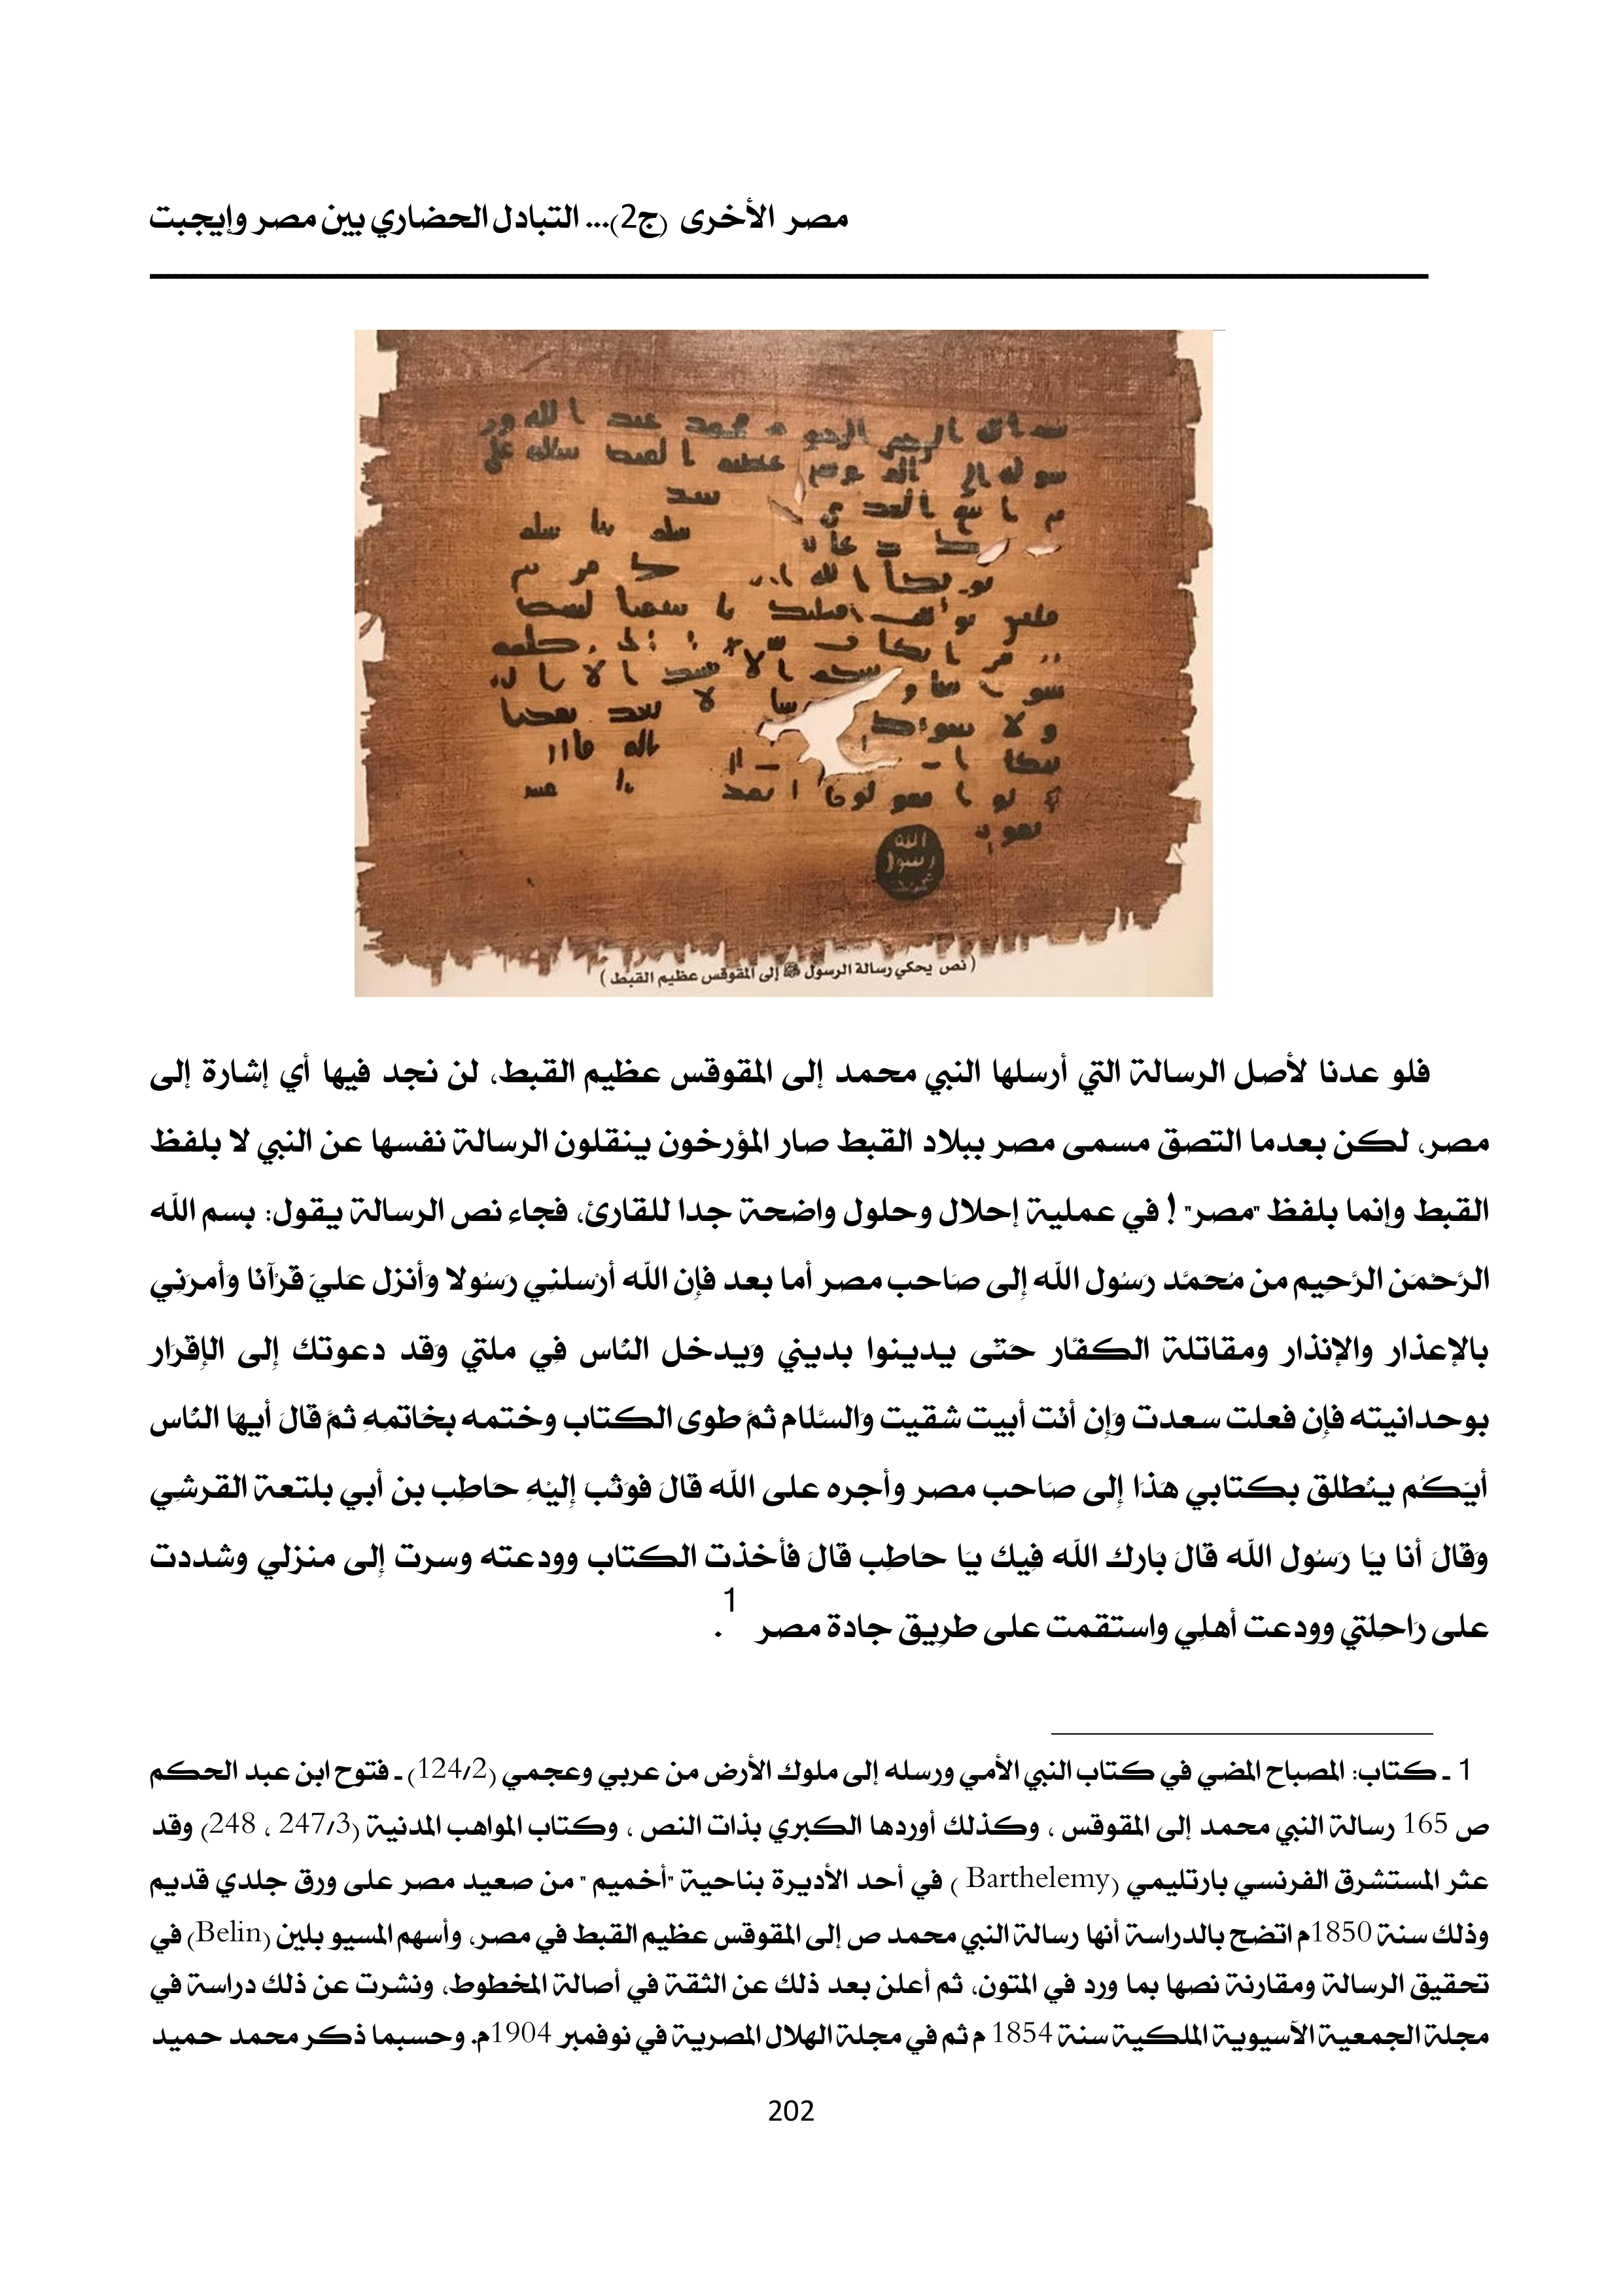 مصر الأخرى (ج2)... التبادل الحضاري بين مصر وإيجبت
الله
رسول
محمد
( نص يحكي رسالة الرسول ﷺ إلى المقوقس عظيم القبط )
فلو عدنا لأصل الرسالة التي أرسلها النبي محمد إلى المقوقس عظيم القبط، لن نجد فيها أي إشارة إلى
مصر، لكن بعدما التصق مسمى مصر ببلاد القبط صار المؤرخون ينقلون الرسالة نفسها عن النبي لا بلفظ
القبط وإنما بلفظ "مصر" ! في عملية إحلال وحلول واضحة جدا للقارئ، فجاء نص الرسالة يقول: بسم الله
الرَّحْمَن الرَّحِيم من مُحَمَّد رَسُول الله إِلى صَاحب مصر أما بعد فَإِن الله أرْسلنِي رَسُولا وَأنزل عَليّ قُرْآنًا وَأمرَنِي
بالإعذار والإنذار ومقاتلة الكفَّار حتَّى يدينوا بديني وَيدخل النَّاس فِي ملتي وَقد دعوتك إِلى الإِقْرَار
بوحدانيته فَإِن فعلت سعدت وَإِن أَنْت أبيت شقيت وَالسَّلَام ثمَّ طوى الكتاب وختمه بِخَاتمِهِ ثمَّ قَالَ أيهَا النَّاس
أَيّكُم ينْطلق بكتابي هَذَا إِلى صَاحب مصر وأجره على الله قَالَ فَوَثَبَ إِليْهِ حَاطِب بن أبي بلتعة القرشِي
وَقَالَ أَنا يَا رَسُول الله قَالَ بَارك الله فِيك يَا حَاطِب قَالَ فَأخذت الكتاب وودعته وسرت إِلى منزلي وشددت
على رَاحِلتي وودعت أهلِي واستقمت على طَرِيق جادة مصر 1.
1 ـ كتاب: المصباح المضي في كتاب النبي الأمي ورسله إلى ملوك الأرض من عربي وعجمي (124/2) ـ فتوح ابن عبد الحكم
ص 165 رسالة النبي محمد إلى المقوقس ، وكذلك أوردها الكبري بذات النص ، وكتاب المواهب المدنية (247/3 ، 248) وقد
عثر المستشرق الفرنسي بارتليمي (Barthelemy ) في أحد الأديرة بناحية "أخميم " من صعيد مصر على ورق جلدي قديم
وذلك سنة 1850م اتضح بالدراسة أنها رسالة النبي محمد ص إلى المقوقس عظيم القبط في مصر، وأسهم المسيو بلين (Belin) في
تحقيق الرسالة ومقارنة نصها بما ورد في المتون، ثم أعلن بعد ذلك عن الثقة في أصالة المخطوط، ونشرت عن ذلك دراسة في
مجلة الجمعية الآسيوية الملكية سنة 1854 م ثم في مجلة الهلال المصرية في نوفمبر 1904م. وحسبما ذكر محمد حميد
202